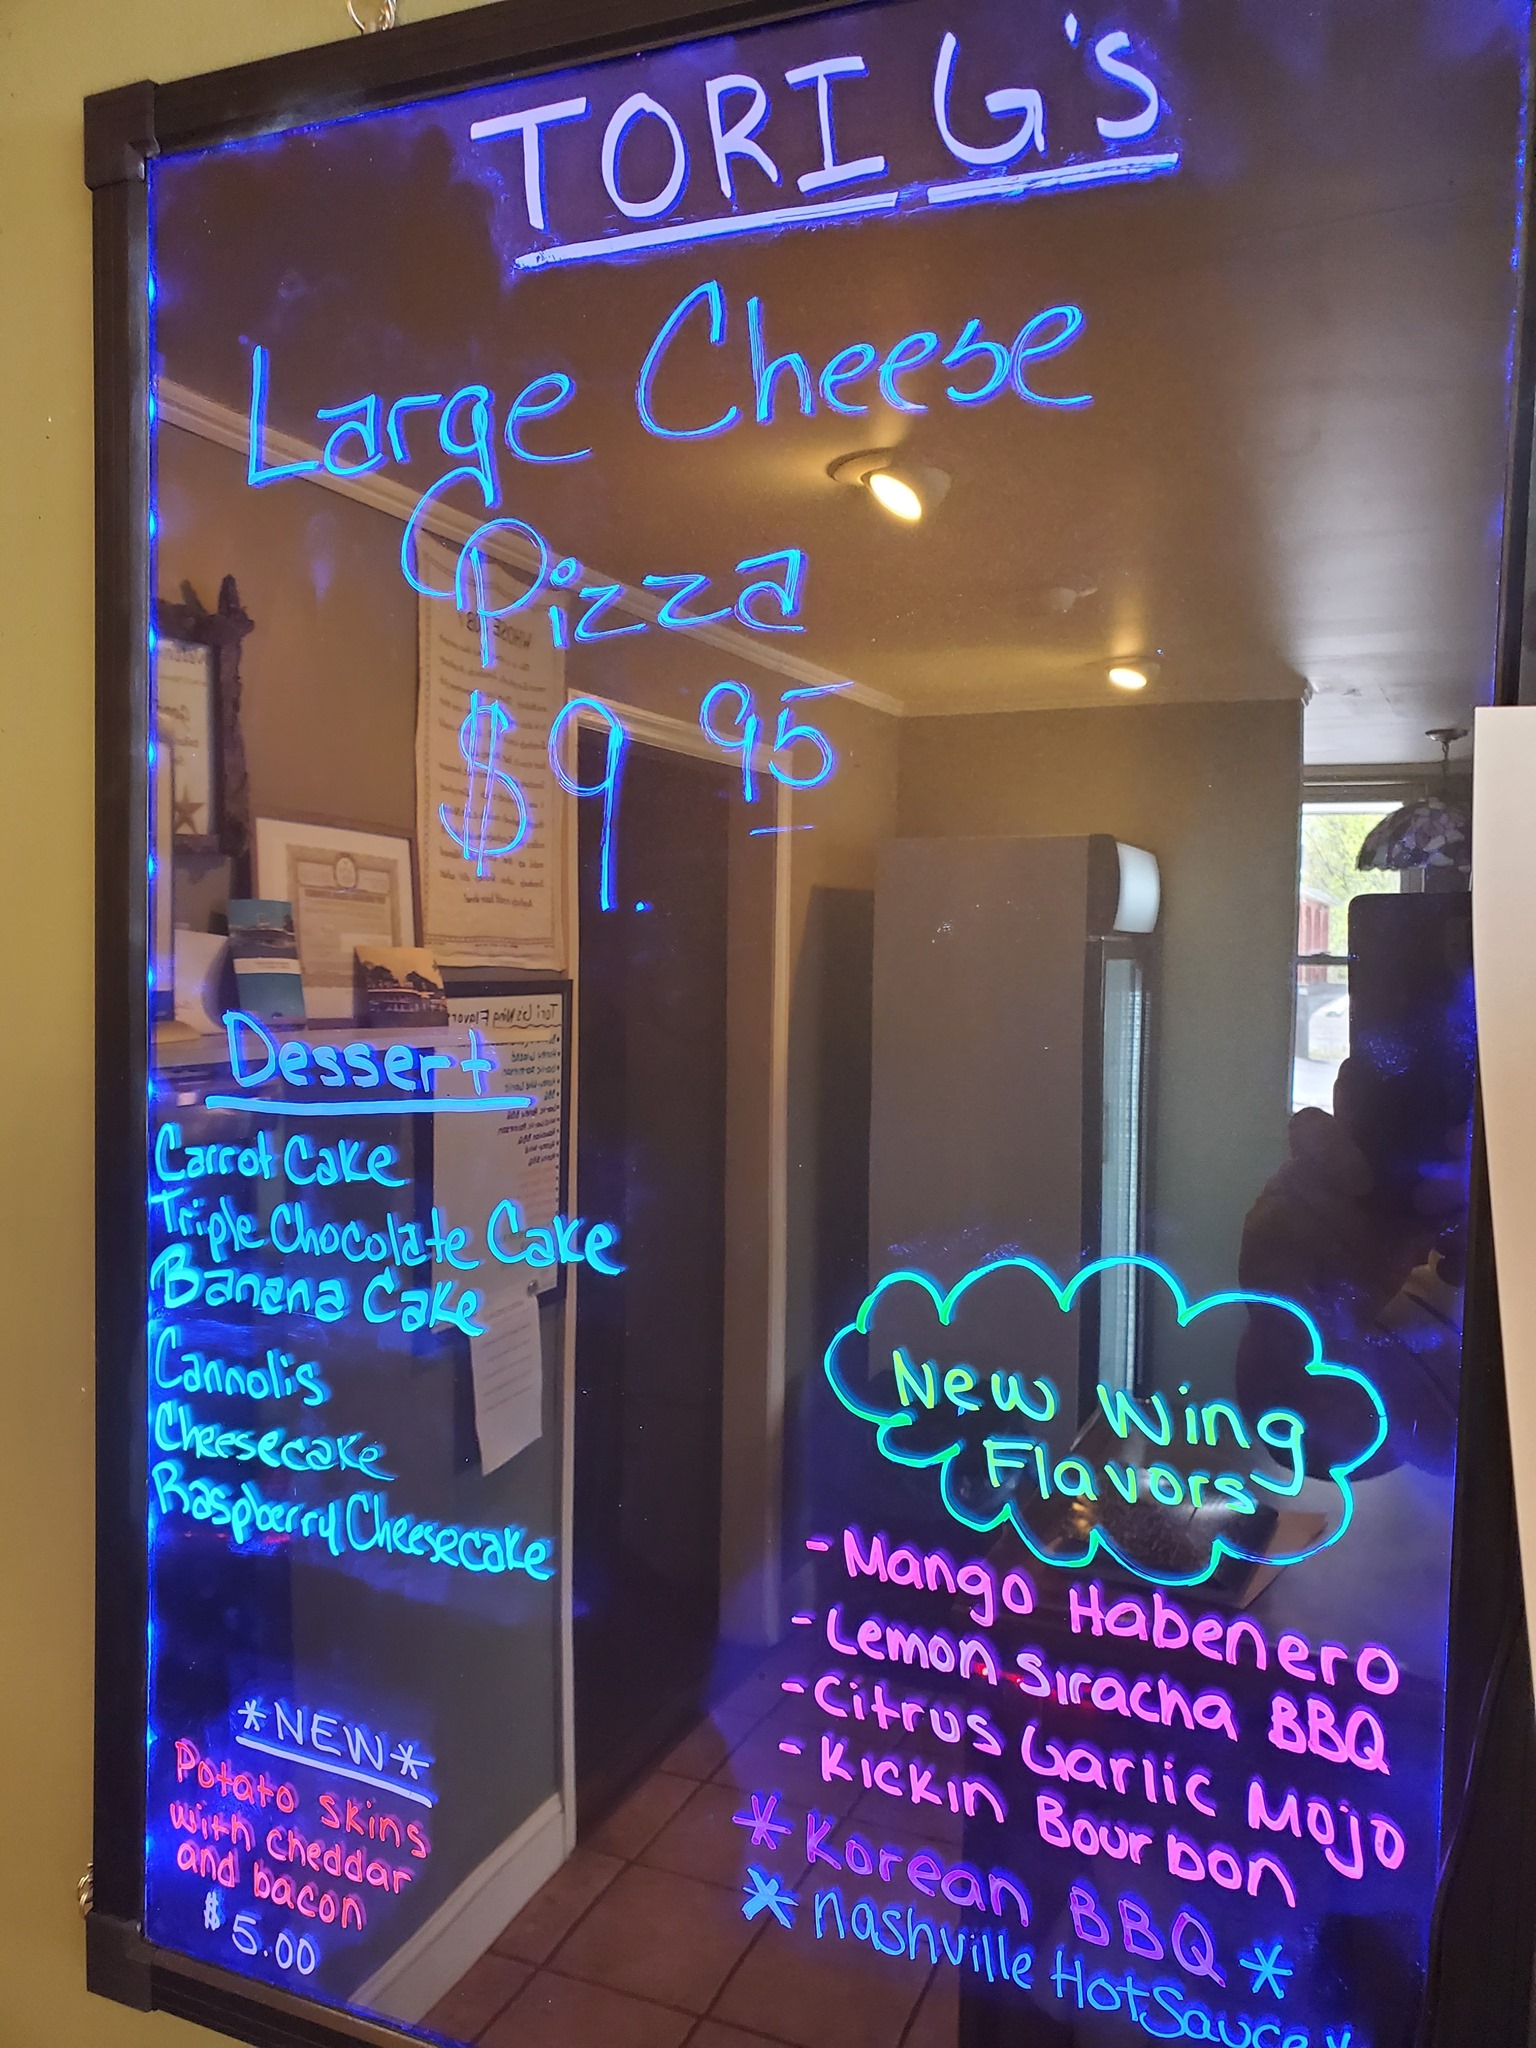 TORI G's
Large Cheese
Pizza
$9.95
Dessert
Carrot Cake
Triple Chocolate Cake
Banana Cake
Cannolis
Cheesecake
Raspberry Cheesecake
*NEW*
Potato skins
with cheddar
and bacon
$5.00
New Wing
Flavors
- Mango Habenero
- Lemon Siracha BBQ
- Citrus Garlic Mojo
- Kickin Bourbon
* Korean BBQ *
* Nashville Hot Sauce *
Tori G's Wing Flavors